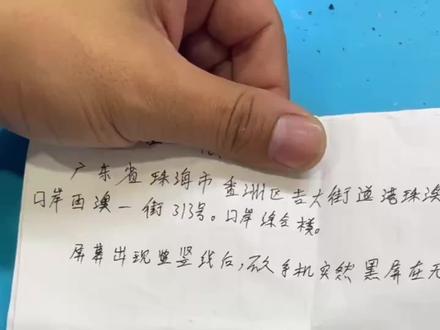 广东省珠海市香洲区吉大街道港珠澳
口岸西澳一街313号。口岸综合楼。
屏幕出现竖线后,手机突然黑屏在无